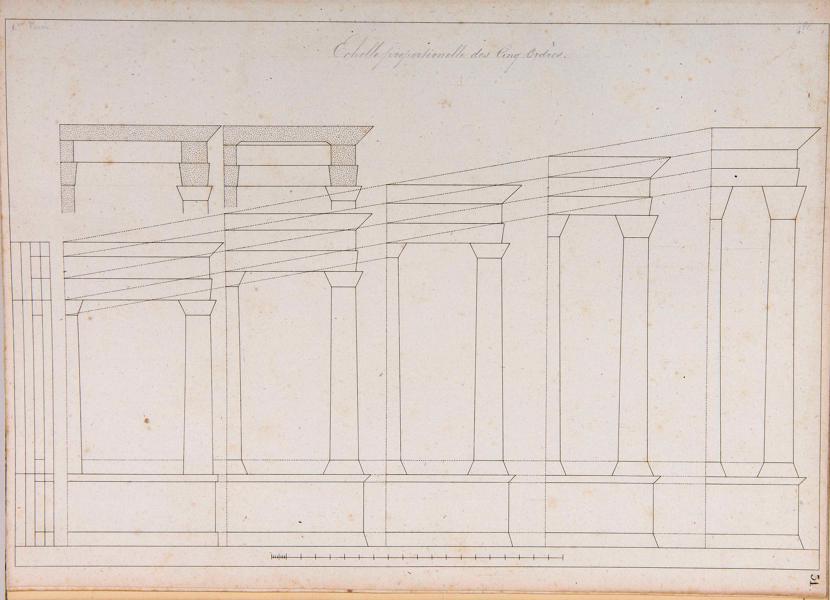 Echelle proportionelle des Cinq Ordres.
51